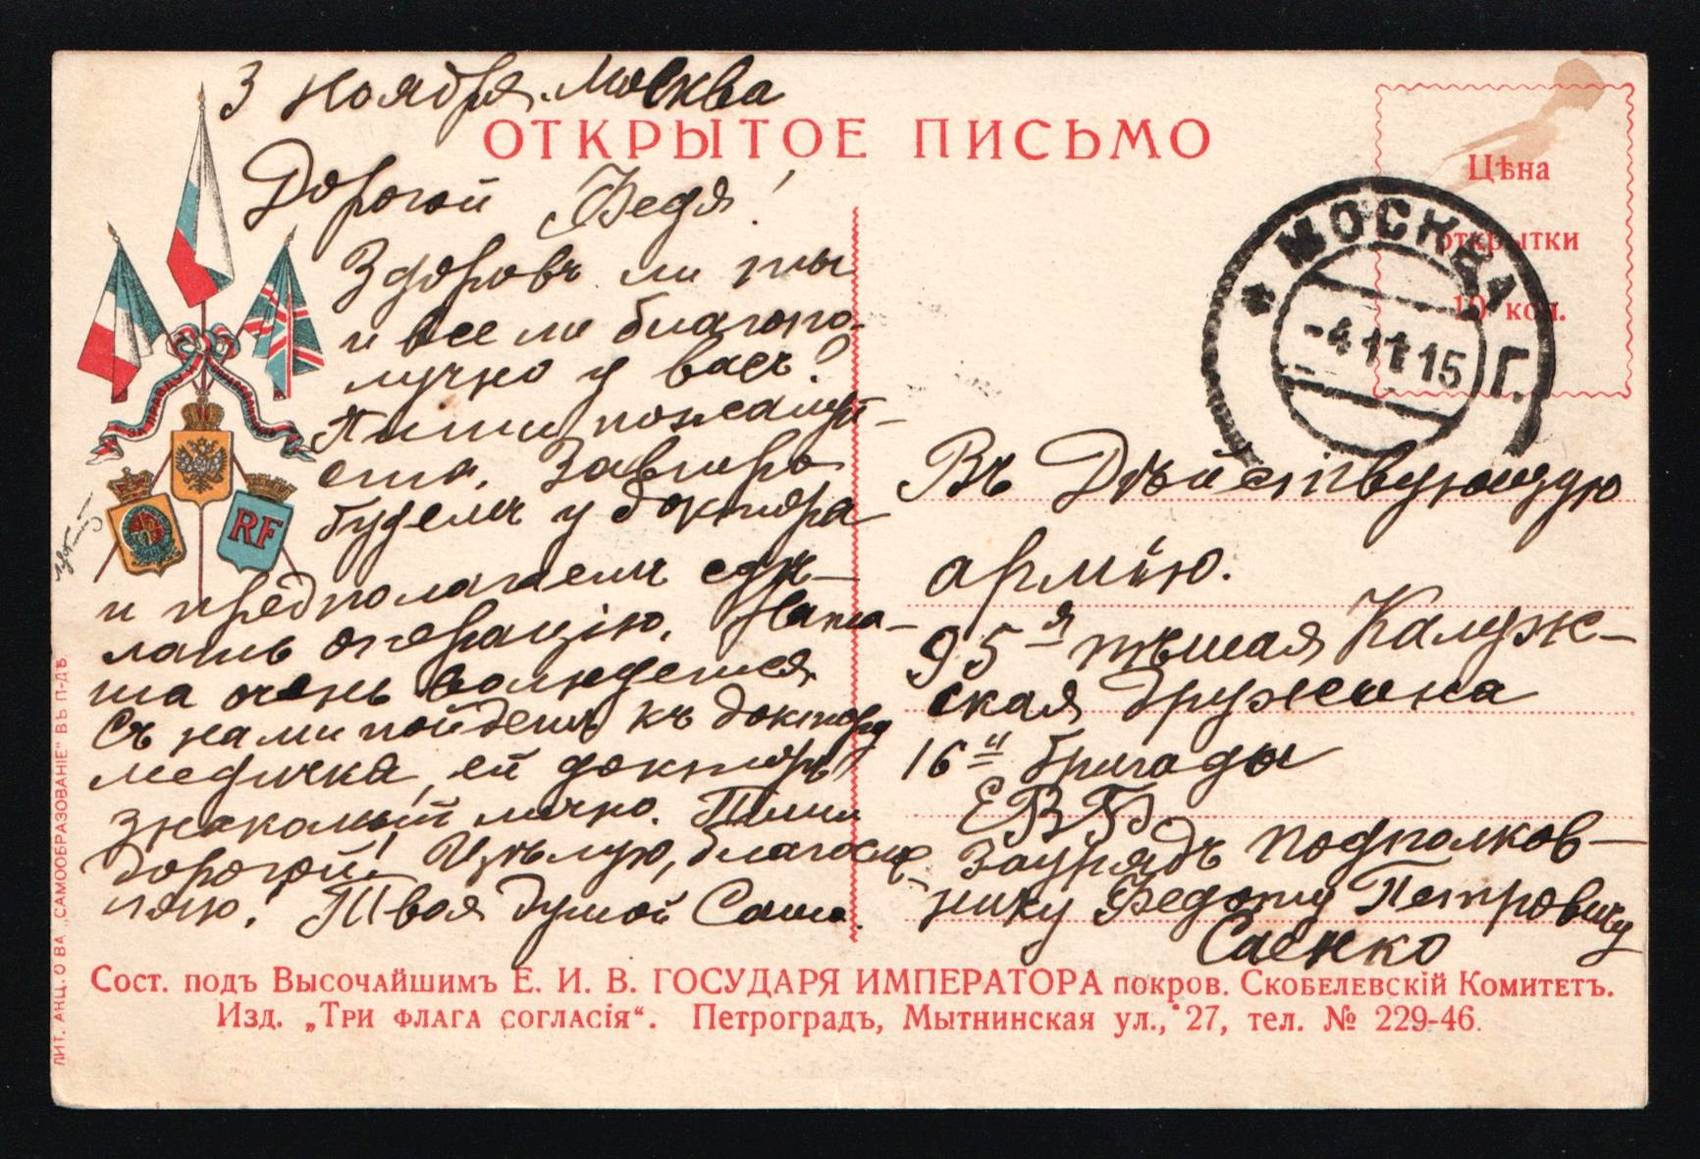 3 ноября. Москва
ОТКРЫТОЕ ПИСЬМО
Дорогой Федя!
Здоровъ ли ты
и все ли благопо-
лучно у васъ?
Пиши пожалуй-
ста. Завтра
будемъ у доктора
и предполагаемъ сдѣ-
лать операцію. Ната-
ша очень волнуется
Съ нами пойдетъ къ доктору
медичка, ей докторъ
знакомый лично. Пиши
дорогой! Цѣлую, благослов-
ляю! Твоя душой Саша.
Цѣна
открытки
10 коп.
* МОСКВА
-4 11 15 Г.
Въ Дѣйствующую
армію.
95-я пѣшая Калуж-
ская дружина
16й бригады
ЕВБ
Зауряд подполков-
нику Федоту Петровичу
Саенко
RF
Сост. подъ Высочайшимъ Е. И. В. ГОСУДАРЯ ИМПЕРАТОРА покров. Скобелевскій Комитетъ.
Изд. „Три флага согласія“. Петроградъ, Мытнинская ул., 27, тел. № 229-46.
ЛИТ. АКЦ. О ВА „САМООБРАЗОВАНІЕ" ВЪ П-ДѢ